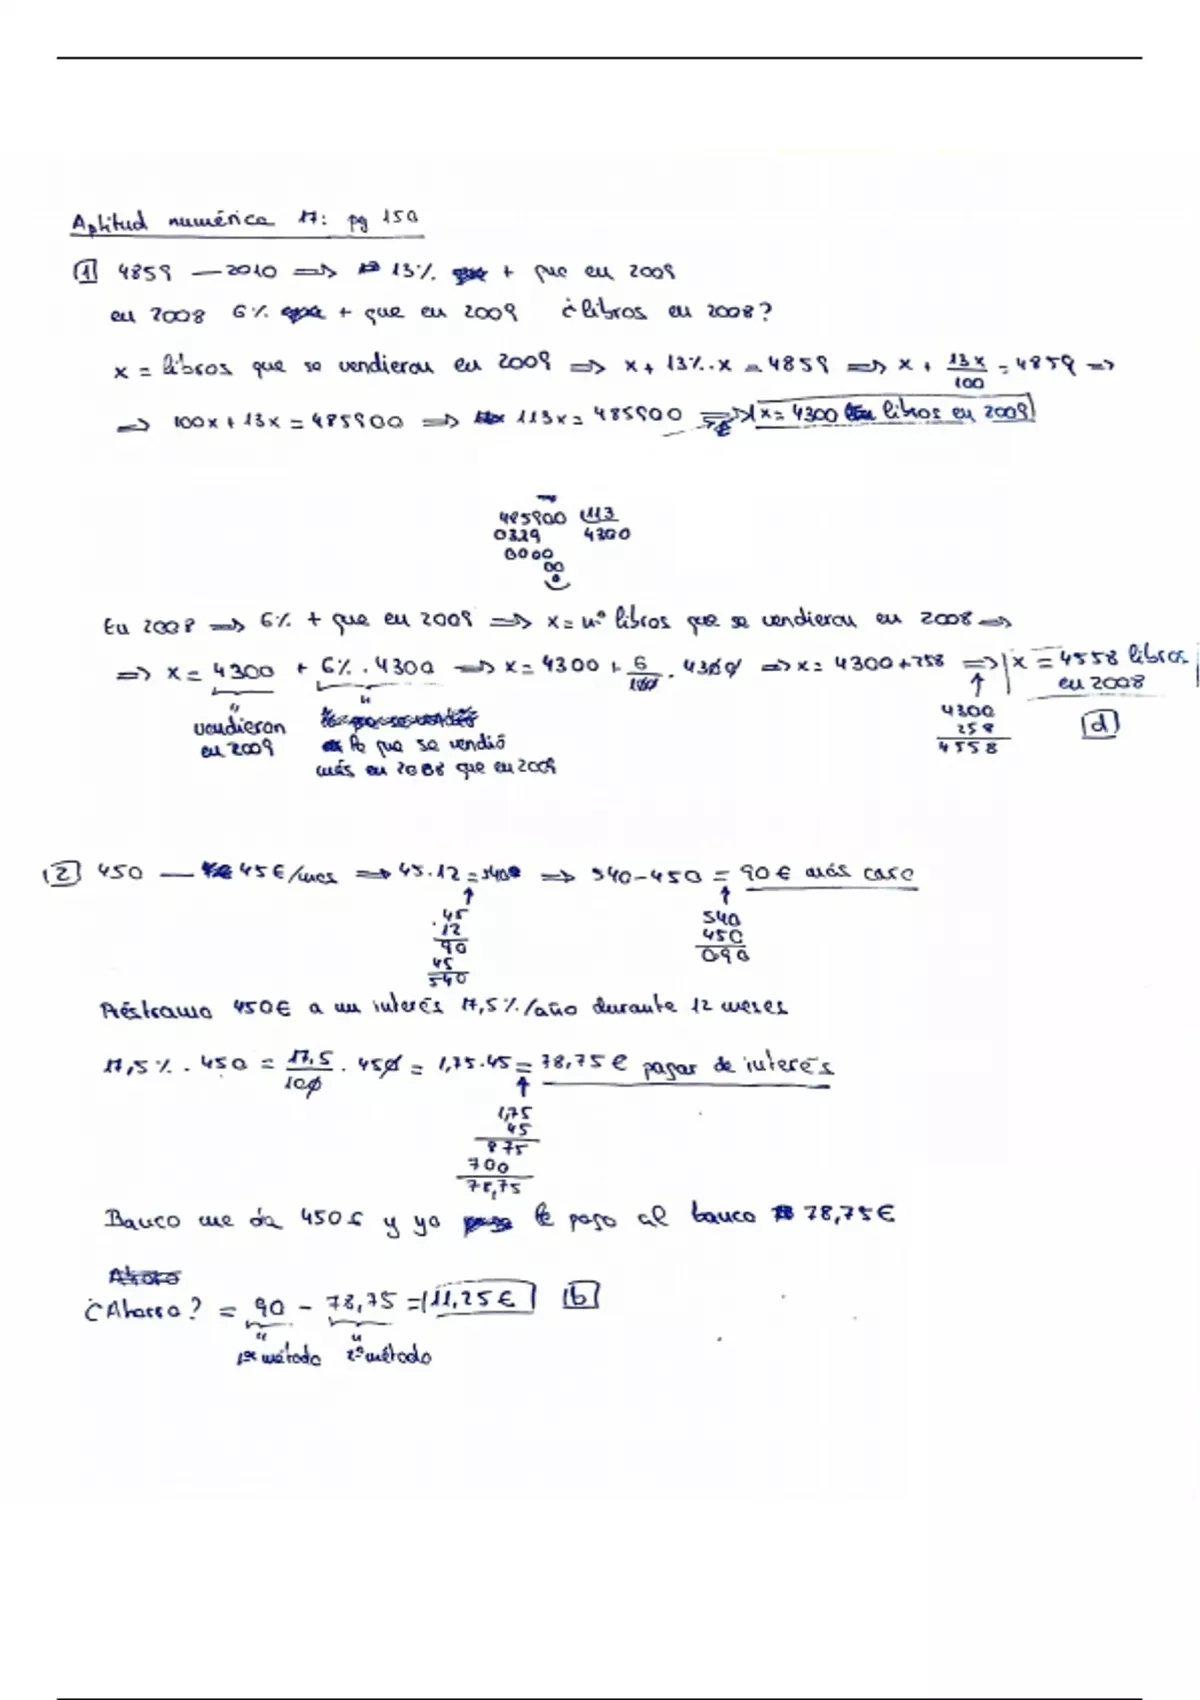 Aptitud numérica 17: pg 150
1 4859 — 2010 ⇒ 13% + que en 2009
en 2008 6% + que en 2009 ¿libros en 2008?
x = libros que se vendieron en 2009 ⇒ x + 13%·x = 4859 ⇒ x + 13x/100 = 4859 ⇒
⇒ 100x + 13x = 485900 ⇒ 113x = 485900 ⇒ x = 4300 libros en 2009
485900 113
0329 4300
0000
00
0
En 2008 ⇒ 6% + que en 2009 ⇒ x = nº libros que se vendieron en 2008 ⇒
⇒ x = 4300 + 6% · 4300 ⇒ x = 4300 + 6/100 · 4300 ⇒ x = 4300 + 258 ⇒ x = 4558 libros
en 2008
" "
vendieron
en 2009
lo que se vendió
más en 2008 que en 2009
4300
258
4558
d
2 450 — 45€/mes ⇒ 45·12 = 540 ⇒ 540 - 450 = 90€ más caro
45
12
90
45
540
540
450
090
Préstamo 450€ a un interés 17,5%/año durante 12 meses
17,5% · 450 = 17,5/100 · 450 = 1,75·45 = 78,75€ pagar de interés
1,75
45
875
700
78,75
Banco me da 450€ y yo le pago al banco 78,75€
¿Ahorro? = 90 - 78,75 = 11,25€ b
" "
1er método 2º método